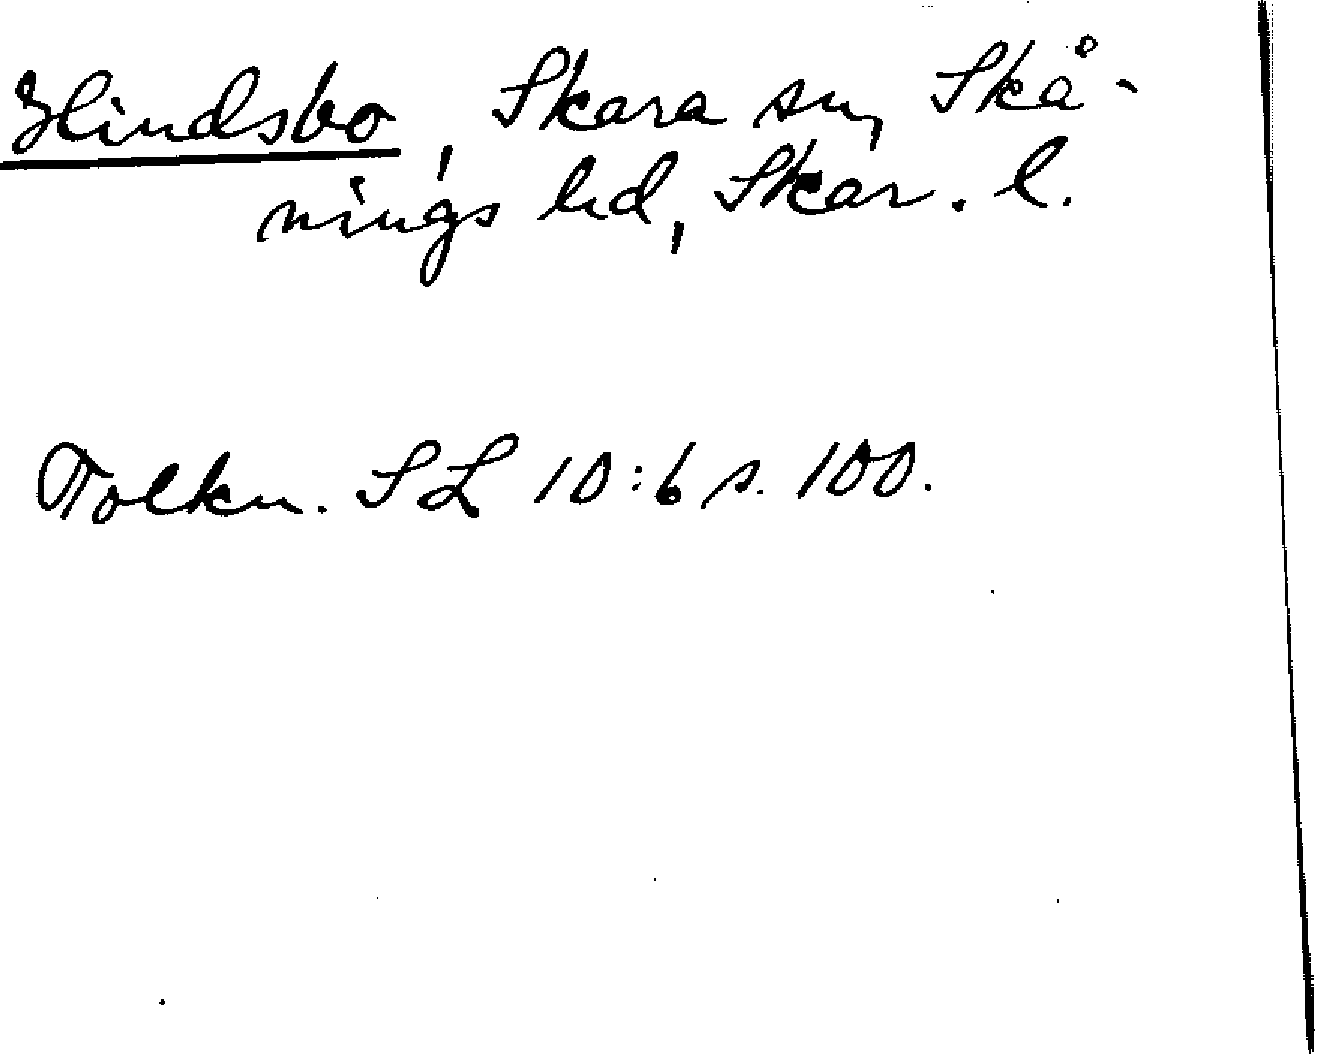 Hindsbo, Skara sn, Skå-
nings hd, Skar. l.
Tolkn. SL 10:6 s. 100.